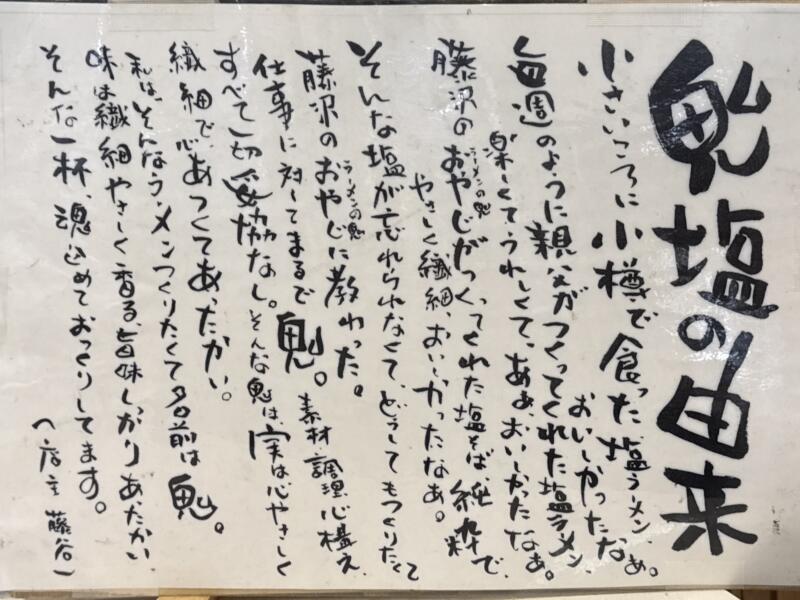 鬼塩の由来
小さいころに小樽で食った塩ラーメン、
おいしかったなぁ。
毎週のように親父がつくってくれた塩ラーメン、
楽しくてうれしくて、あぁおいしかったなぁ。
藤沢のおやじがつくってくれた塩そば、純粋で、
ラーメンの鬼
やさしく繊細、おいしかったなぁ。
そんな塩が忘れられなくて、どうしてもつくりたくて
藤沢のおやじに教わった。
ラーメンの鬼
仕事に対してまるで鬼。素材、調理、心構え、
すべて一切妥協なし。そんな鬼は、実は心やさしく
繊細で、心あつくてあったかい。
私は、そんなラーメンつくりたくて名前は鬼。
味は繊細やさしく香る、旨味しっかりあたたかい
そんな一杯、魂込めておつくりしてます。
へ店主 藤谷一